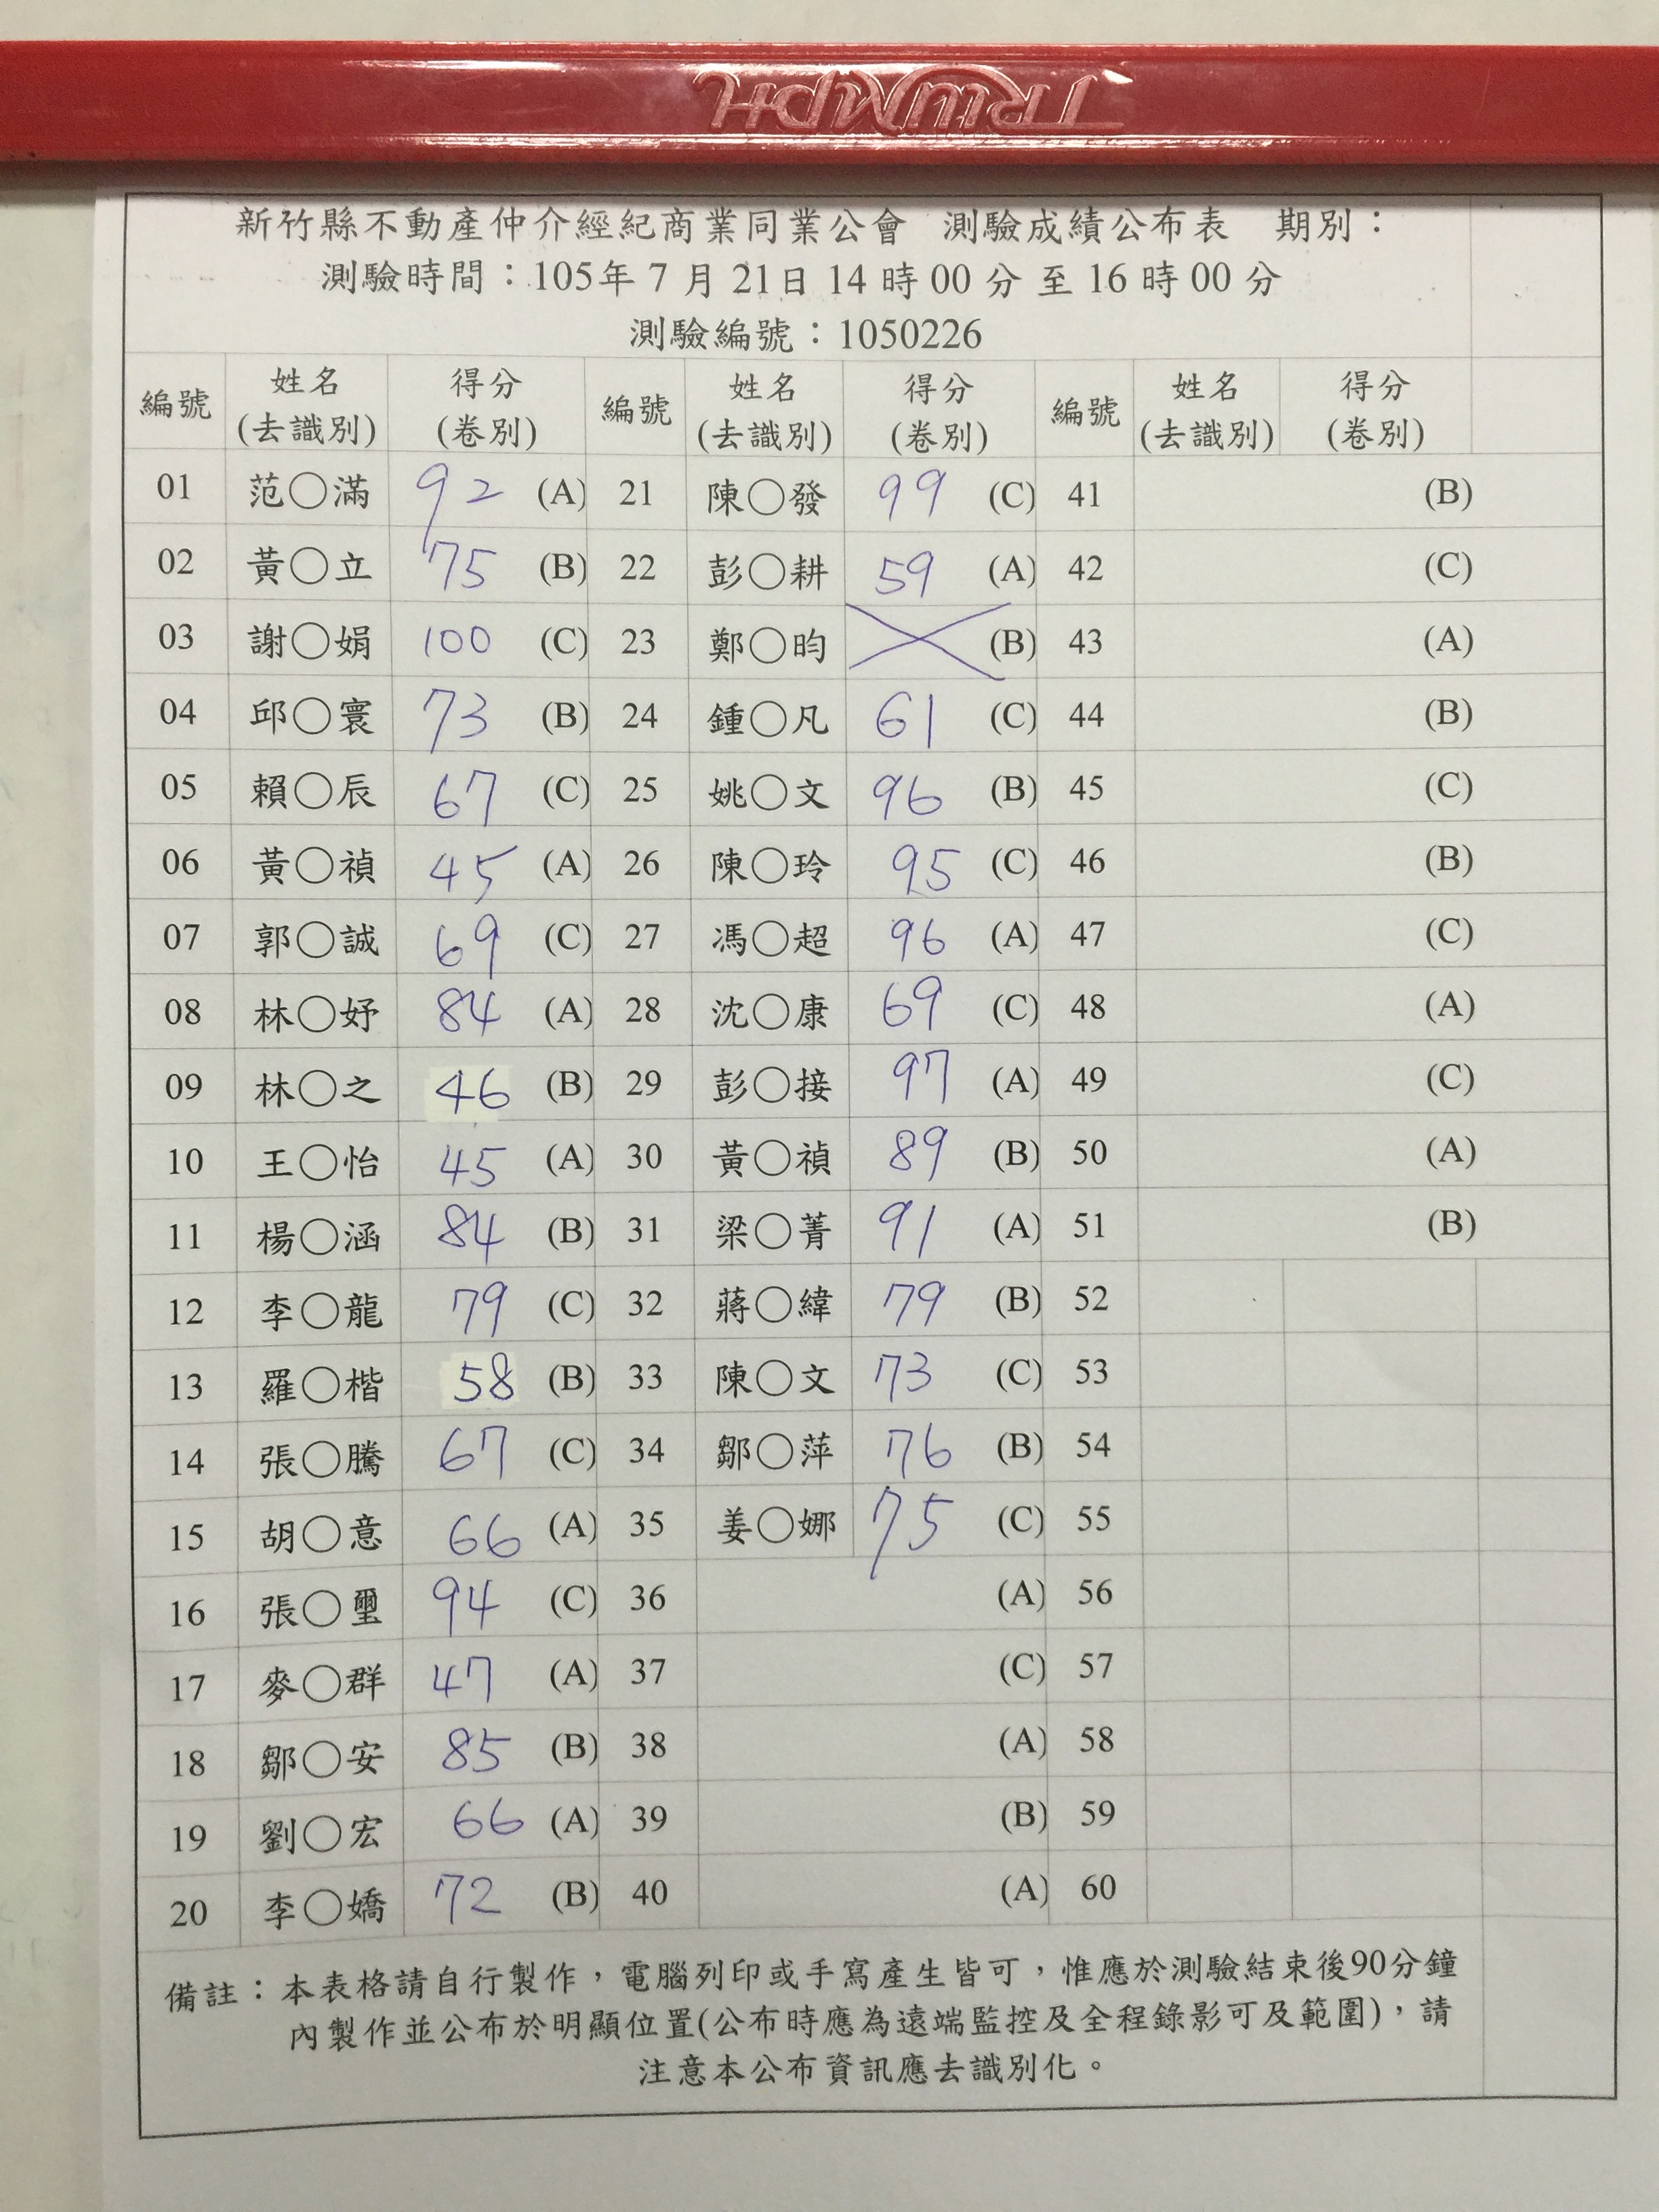 TRIUMPH
新竹縣不動產仲介經紀商業同業公會 測驗成績公布表 期別：
測驗時間：105年 7 月 21日 14 時 00 分 至 16 時 00 分
測驗編號：1050226
編號 姓名(去識別) 得分(卷別) 編號 姓名(去識別) 得分(卷別) 編號 姓名(去識別) 得分(卷別)
01 范○滿 92 (A) 21 陳○發 99 (C) 41 (B)
02 黃○立 75 (B) 22 彭○耕 59 (A) 42 (C)
03 謝○娟 100 (C) 23 鄭○昀 (B) 43 (A)
04 邱○寰 73 (B) 24 鍾○凡 61 (C) 44 (B)
05 賴○辰 67 (C) 25 姚○文 96 (B) 45 (C)
06 黃○禎 45 (A) 26 陳○玲 95 (C) 46 (B)
07 郭○誠 69 (C) 27 馮○超 96 (A) 47 (C)
08 林○妤 84 (A) 28 沈○康 69 (C) 48 (A)
09 林○之 46 (B) 29 彭○接 97 (A) 49 (C)
10 王○怡 45 (A) 30 黃○禎 89 (B) 50 (A)
11 楊○涵 84 (B) 31 梁○菁 91 (A) 51 (B)
12 李○龍 79 (C) 32 蔣○緯 79 (B) 52
13 羅○楷 58 (B) 33 陳○文 73 (C) 53
14 張○騰 67 (C) 34 鄒○萍 76 (B) 54
15 胡○意 66 (A) 35 姜○娜 75 (C) 55
16 張○璽 94 (C) 36 (A) 56
17 麥○群 47 (A) 37 (C) 57
18 鄒○安 85 (B) 38 (A) 58
19 劉○宏 66 (A) 39 (B) 59
20 李○嬌 72 (B) 40 (A) 60
備註：本表格請自行製作，電腦列印或手寫產生皆可，惟應於測驗結束後90分鐘
內製作並公布於明顯位置(公布時應為遠端監控及全程錄影可及範圍)，請
注意本公布資訊應去識別化。